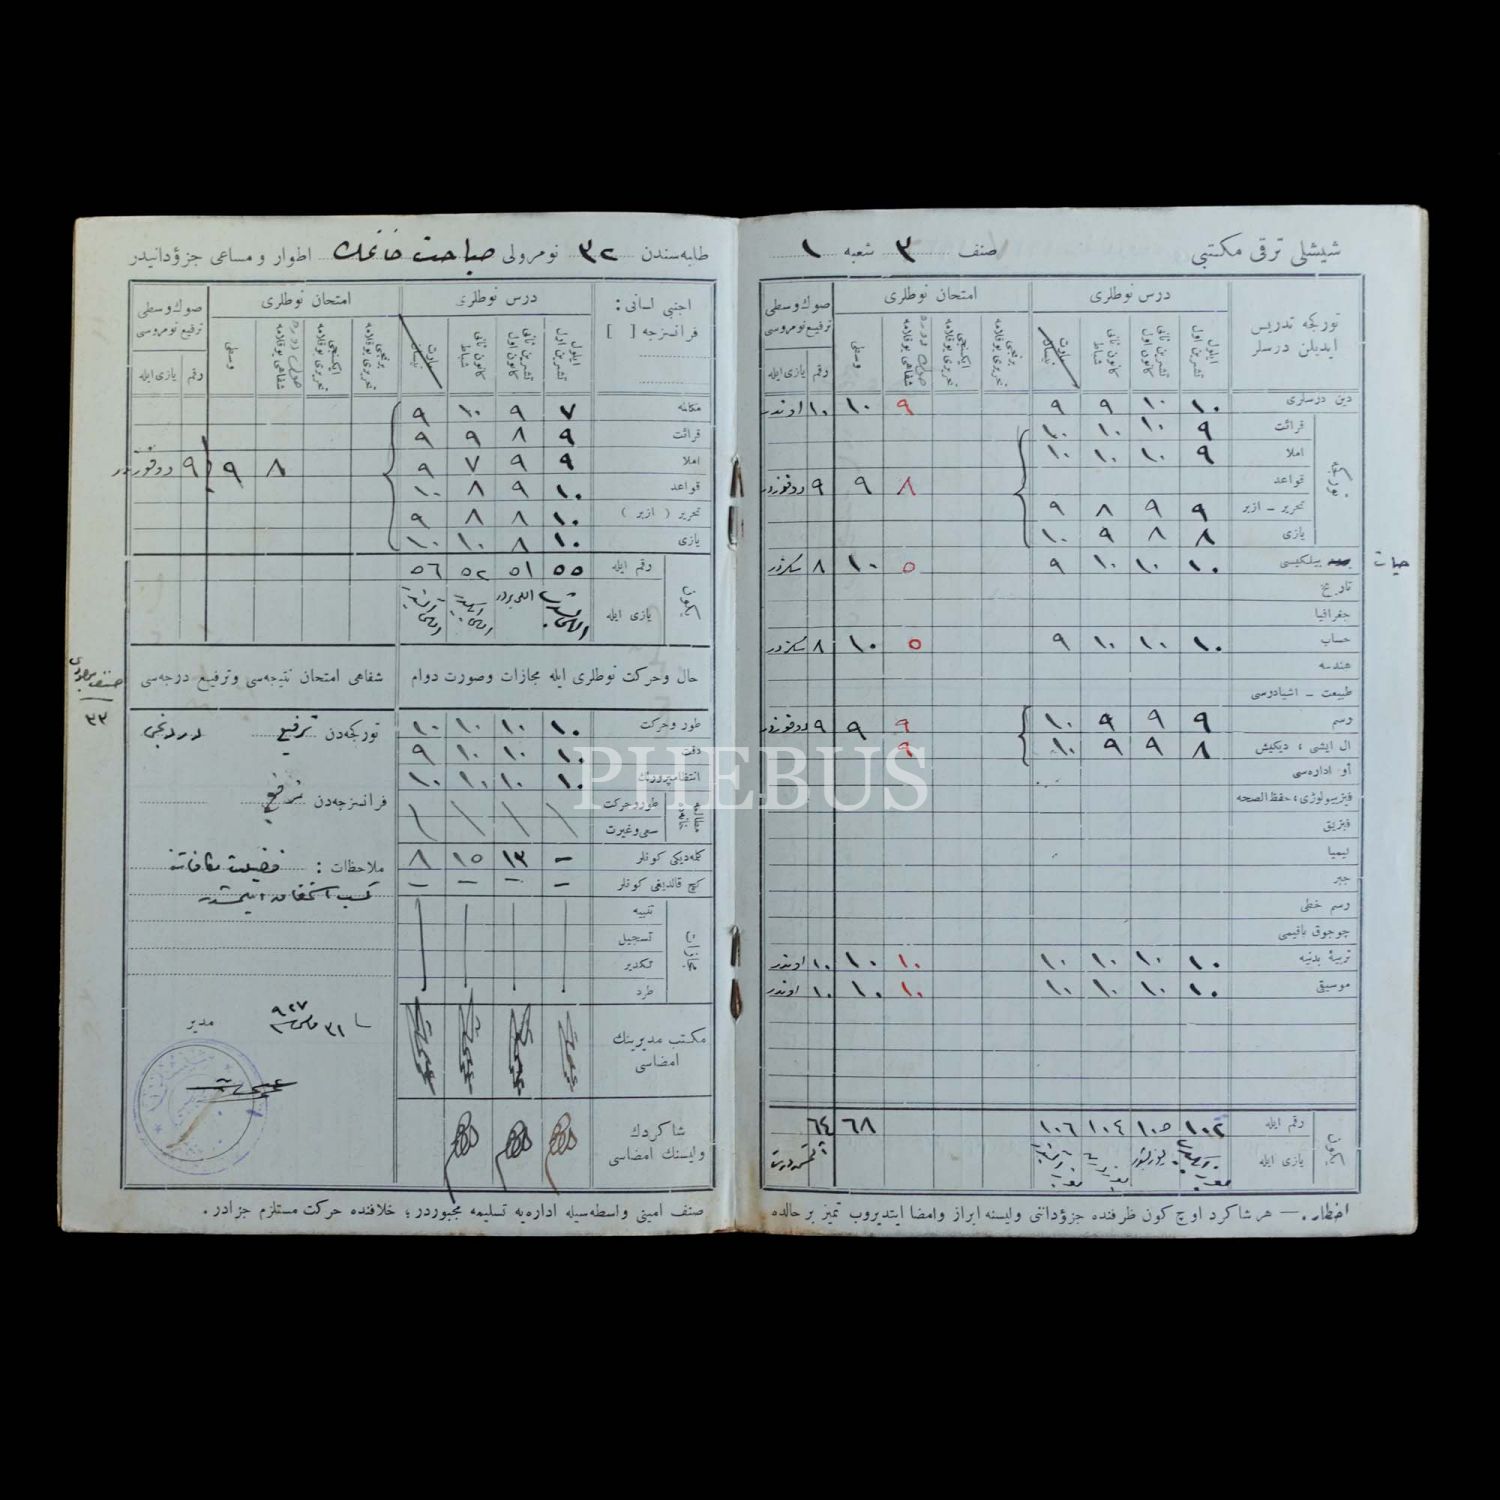 شیشلی ترقی مکتبی
صنف ٣ شعبه ١
تورکجه تدریس ایدیلن درسلر
درس نوطلری
امتحان نوطلری
صوك وسطی ترفیع نومروسی
ایلول تشرین اول
تشرین ثانی کانون اول
کانون ثانی شباط
مارت نیسان
برنجی تحریری یوقلامه
ایکنجی تحریری یوقلامه
شفاهی یوقلامه
وسطی
رقم
یازی ایله
دین درسلری ١٠ ١٠ ٩ ٩ ٩ ١٠ ١٠ اوندر
تورکجه
قرائت ٩ ١٠ ١٠ ١٠
املا ٩ ١٠ ١٠ ١٠
قواعد ٨ ٩ ٩ دوقوزدر
تحریر ـ ازبر ٩ ٩ ٨ ٩
یازی ٨ ٨ ٩ ١٠
حیات
بیلکیسی ١٠ ١٠ ١٠ ٩ ٥ ١٠ ٨ سکزدر
تاریخ
جغرافیا
حساب ١٠ ١٠ ١٠ ٩ ٥ ١٠ ٨ سکزدر
هندسه
طبیعت ـ اشیادرسی
رسم ٩ ٩ ٩ ١٠ ٩ ٩ ٩ دوقوزدر
ال ایشی ، دیکیش ٨ ٩ ٩ ١٠ ٩
أو اداره‌سی
فیزیولوژی، حفظ الصحه
فیزیق
کیمیا
جبر
رسم خطی
چوجوق باقیمی
تربیهٔ بدنیه ١٠ ١٠ ١٠ ١٠ ١٠ ١٠ ١٠ اوندر
موسیقی ١٠ ١٠ ١٠ ١٠ ١٠ ١٠ ١٠ اوندر
یکون
رقم ایله ١٠٢ ١٠٥ ١٠٤ ١٠٦ ٦٨ ٦٤
یازی ایله
اخطار . — هر شاکرد اوچ کون ظرفنده جزؤداننی ولیسنه ابراز وامضا ایتدیروب تمیز بر حالده
طلبه‌سندن ٣٢ نومرولی صباحت خانمك اطوار و مساعی جزؤدانیدر
اجنبی لسانی :
فرانسزجه [ ]
درس نوطلری
امتحان نوطلری
صوك وسطی ترفیع نومروسی
ایلول تشرین اول
تشرین ثانی کانون اول
کانون ثانی شباط
مارت نیسان
برنجی تحریری یوقلامه
ایکنجی تحریری یوقلامه
شفاهی یوقلامه
وسطی
رقم
یازی ایله
مکالمه ٧ ٩ ١٠ ٩
قرائت ٩ ٨ ٩ ٩
املا ٩ ٩ ٧ ٩ ٨ ٩ ٩ دوقوزدر
قواعد ١٠ ٩ ٨ ١٠
تحریر ( ازبر ) ١٠ ٨ ٨ ٩
یازی ١٠ ٨ ١٠ ١٠
یکون
رقم ایله ٥٥ ٥١ ٥٢ ٥٦
یازی ایله اللی بشدر اللی بردر اللی ایکیدر اللی آلتیدر
حال وحرکت نوطلری ایله مجازات وصورت دوام
شفاهی امتحان نتیجه‌سی وترفیع درجه‌سی
صنف موجودی
٣٣
طور وحرکت ١٠ ١٠ ١٠ ١٠
دقت ١٠ ١٠ ١٠ ٩
انتظامپرورلك ١٠ ١٠ ١٠ ١٠
طوروحرکت
سعی وغیرت
کلمه‌دیکی کونلر — ١٣ ١٥ ٨
کچ قالدیغی کونلر — — — —
مجازات
تنبیه
تسجیل
تکدیر
طرد
مکتب مدیرینك امضاسی
شاکردك ولیسنك امضاسی
تورکجه‌دن ترفیع دردنجی
فرانسزجه‌دن ترفیع
ملاحظات : فضیلت مکافاتنه
کسب استحقاق ایتمشدر
٣١ مارس ٩٢٧
مدیر
صنف امینی واسطه‌سیله اداره‌یه تسلیمه مجبوردر ؛ خلافنده حرکت مستلزم جزادر .
PHEBUS